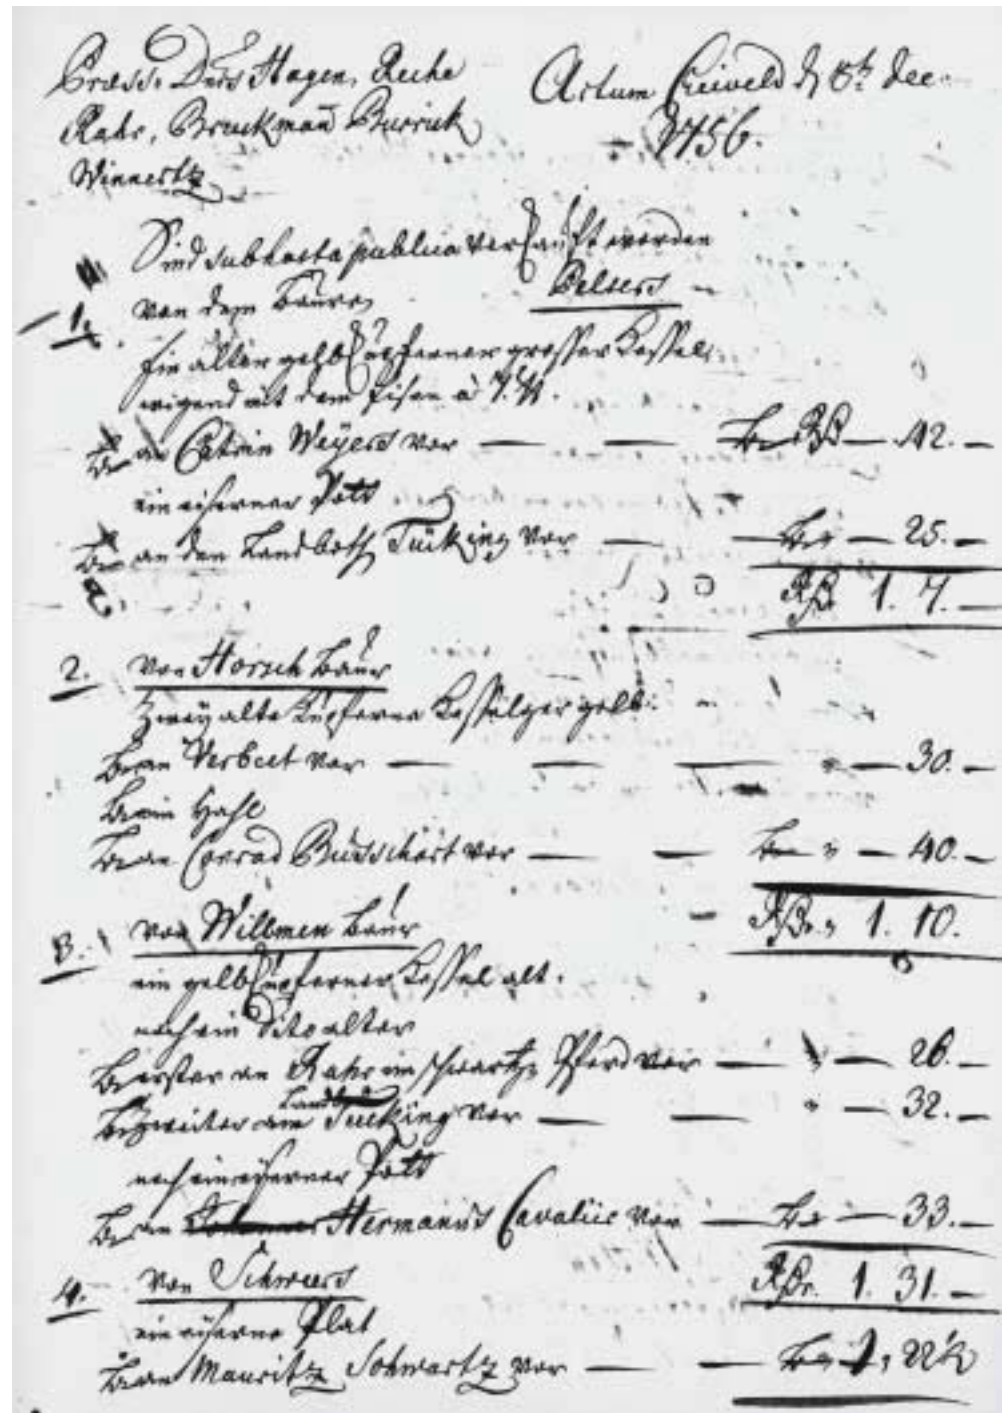 Præss. Dnrs Hagen, Ruhe
Rahr, Bruckman Burrick
Winnertz
Actum Creiveld d 8t. Dec.
1756.
Sind sub hasta publica verkauft worden
1. von dem Bauren Belsers
Ein alter gelb kupferner grosser Kessel
wigend mit dem Eisen a 7. lb.
an Catrin Weyers vor — — 42. —
ein eiserner Pott
an den Landboth Tücking vor — — 25. —
Rthr. 1. 7. —
2. von Horsch Baur
Zwey alte kupferne Kesselger gelb.
an Verbeet vor — — — — 30. —
ein Hahl
an Conrad Busschert vor — — — 40. —
Rthr. 1. 10.
3. von Willmen Baur
ein gelb kupferner Kessel alt.
noch ein dito alter
erster an Rahr im schwartz Pferd vor — — 26. —
zweiter am Landb. Tucking vor — — — 32. —
noch ein eiserner Pott
an Hermanus Cavaliir vor — — 33. —
Rthr. 1. 31. —
4. von Schweers
ein eiserne Plat
an Mauritz Schwartz vor — — 1, 22½